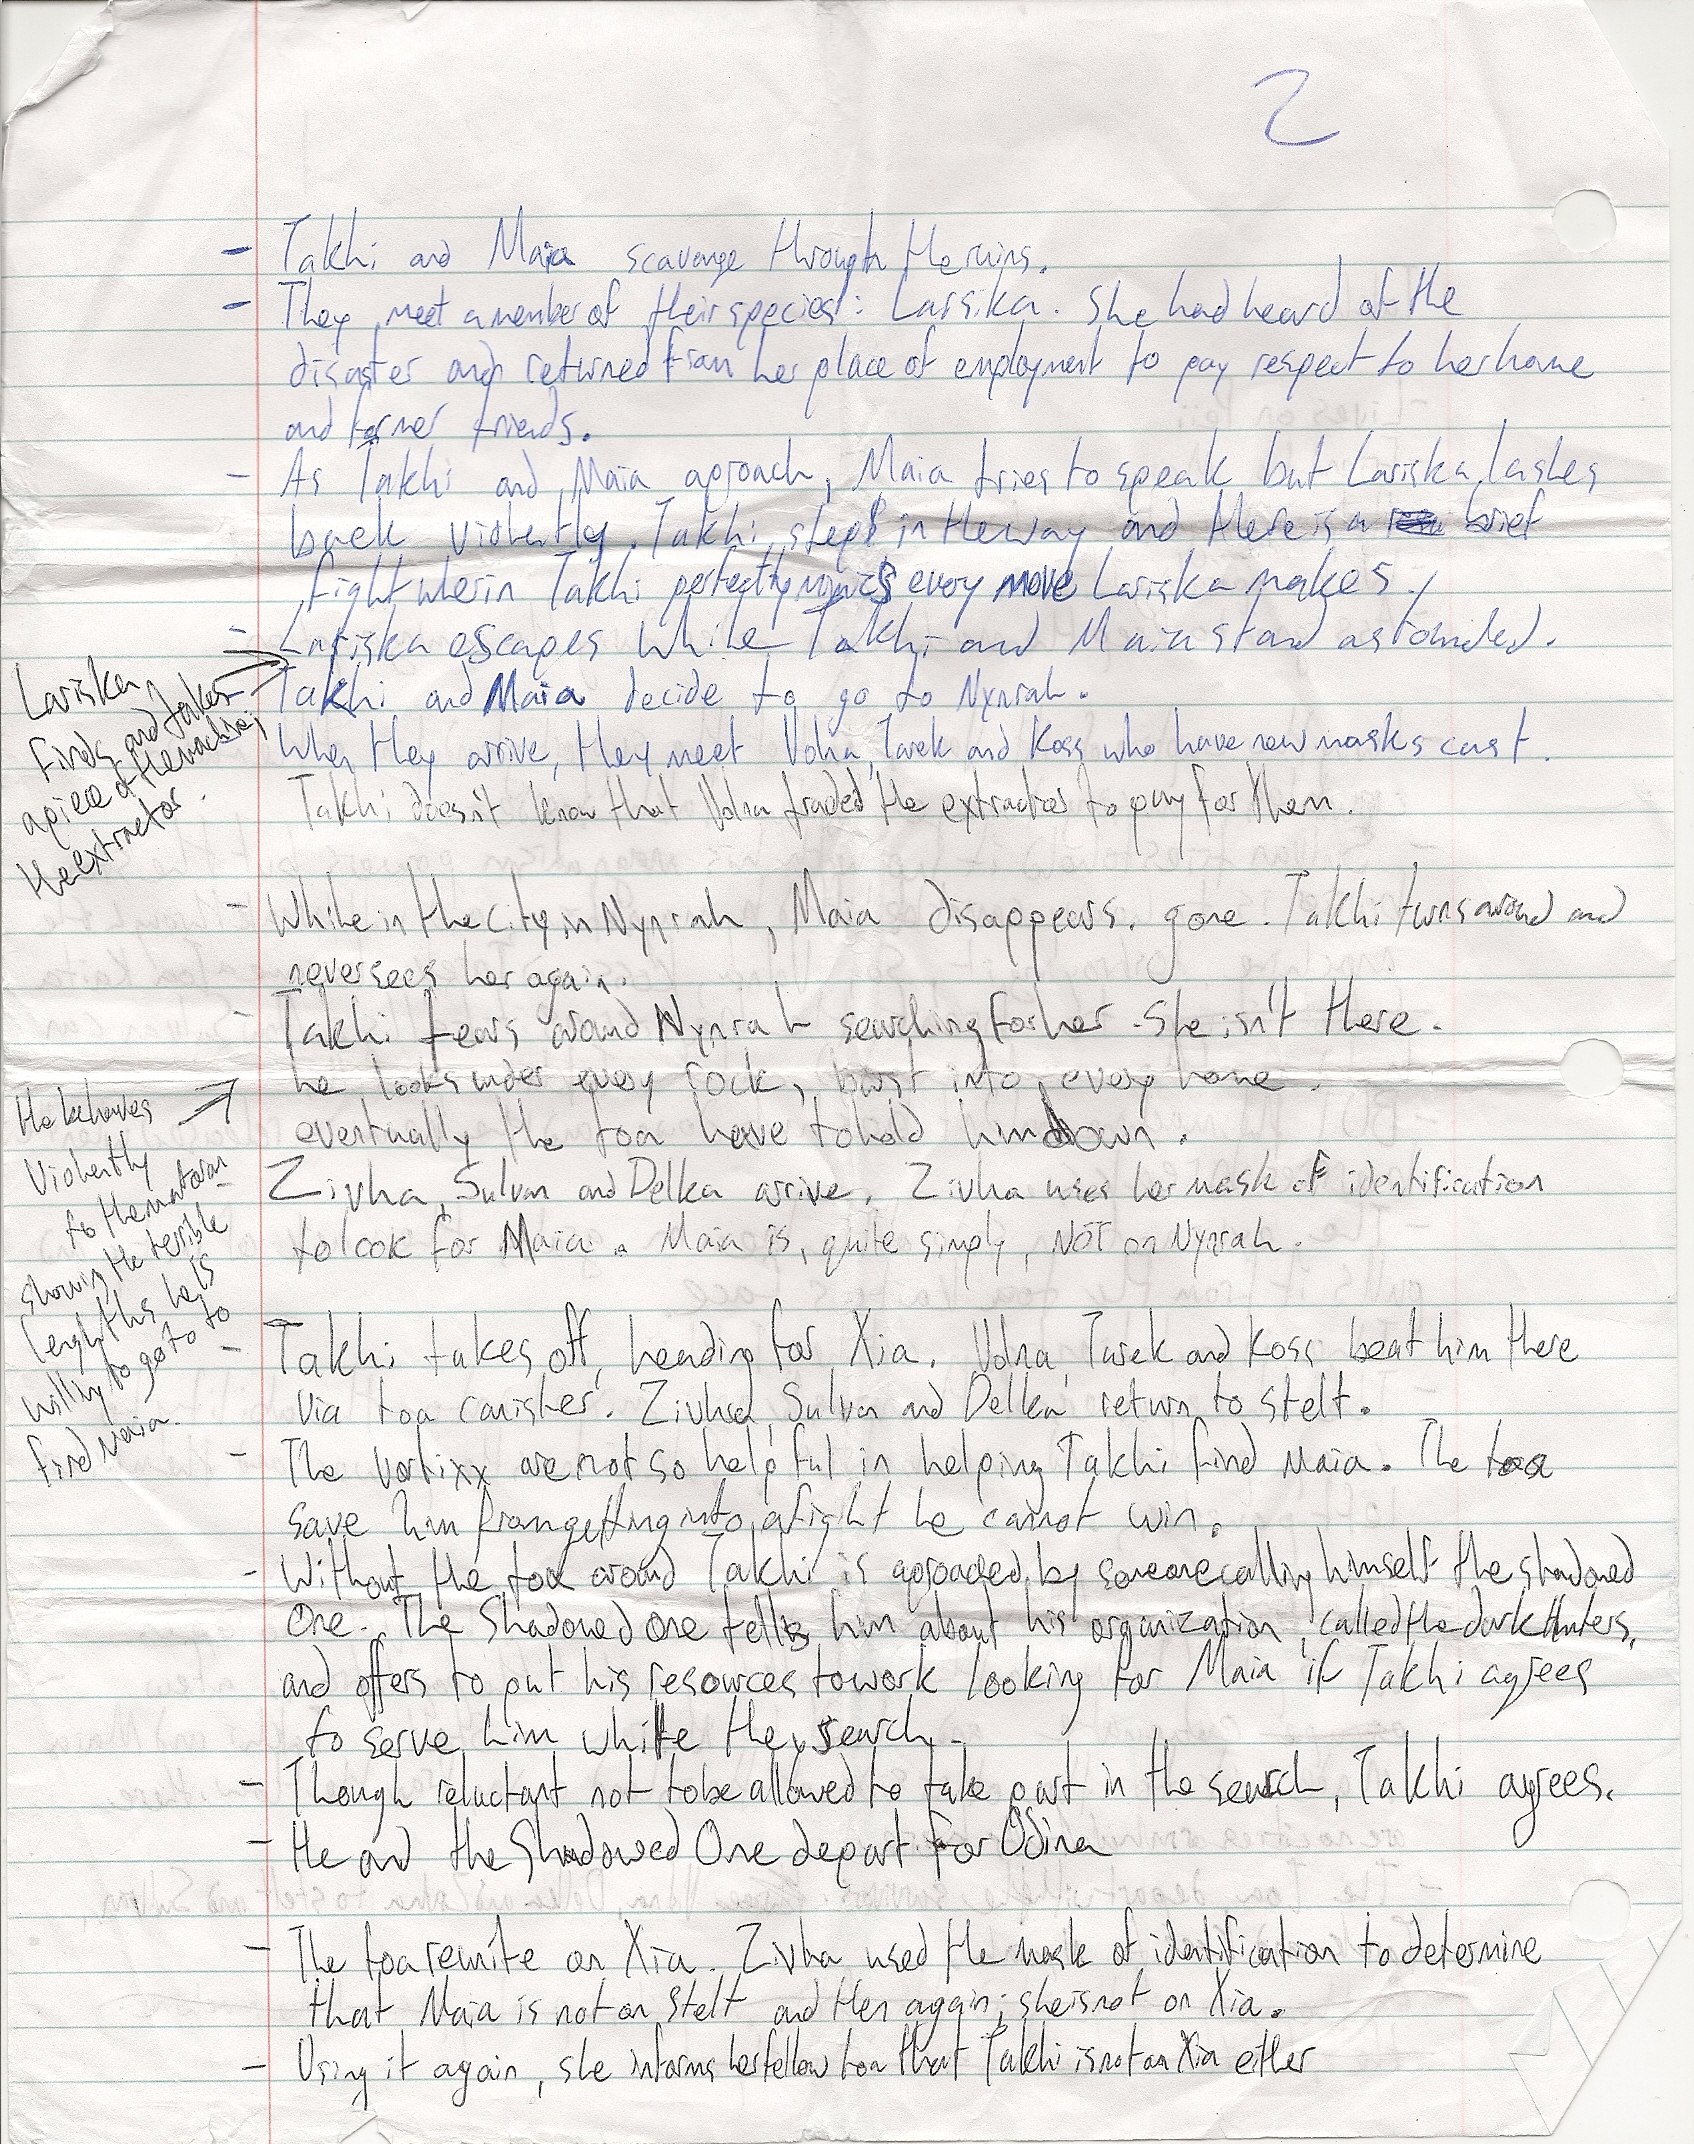 2
- Takhi and Maia scavenge through the ruins.
- They meet a member of their species: Larsika. She had heard of the
disaster and returned from her place of employment to pay respect to her home
and former friends.
- As Takhi and Maia aproach, Maia tries to speak but Lariska lashes
back violently. Takhi steps in the way and there is a brief
fight wherin Takhi perfectly mimics every move Lariska makes.
- Lariska escapes while Takhi and Maia stand astounded.
Lariska
finds and takes
a piece of the machine;
the extractor.
- Takhi and Maia decide to go to Nynrah.
When they arrive, they meet Volna, Tarek and Koss who have new masks cast.
Takhi doesn't know that Volna traded the extractor to pay for them.
- While in the city in Nynrah, Maia disappears. gone. Takhi turns around and
never sees her again.
- Takhi tears around Nynrah searching for her. She isn't there.
he looks under every rock, burst into every home.
eventually the toa have to hold him down.
He behaves
violently
to the matoran
showing the terrible
lengths he is
willing to go to to
find Maia.
Zivha, Sulvan and Delka arrive. Zivha uses her mask of identification
to look for Maia. Maia is, quite simply, NOT on Nynrah.
- Takhi takes off, heading for Xia. Volna, Tarek and Koss beat him there
via toa canister. Zivha, Sulvan and Delka return to Stelt.
- The Vortixx are not so helpful in helping Takhi find Maia. The toa
save him from getting into a fight he cannot win.
- Without the toa around Takhi is aproaced by someone calling himself the shadowed
One. The Shadowed One tells him about his organization, called the dark Hunters,
and offers to put his resources to work looking for Maia if Takhi agrees
to serve him while they search.
- Though reluctant not to be allowed to take part in the search, Takhi agrees.
- He and the Shadowed One depart for Odina
- The toa reunite on Xia. Zivha used the mask of identification to determine
that Maia is not on Stelt and then again; she is not on Xia.
- Using it again, she informs her fellow toa that Takhi is not on Xia either